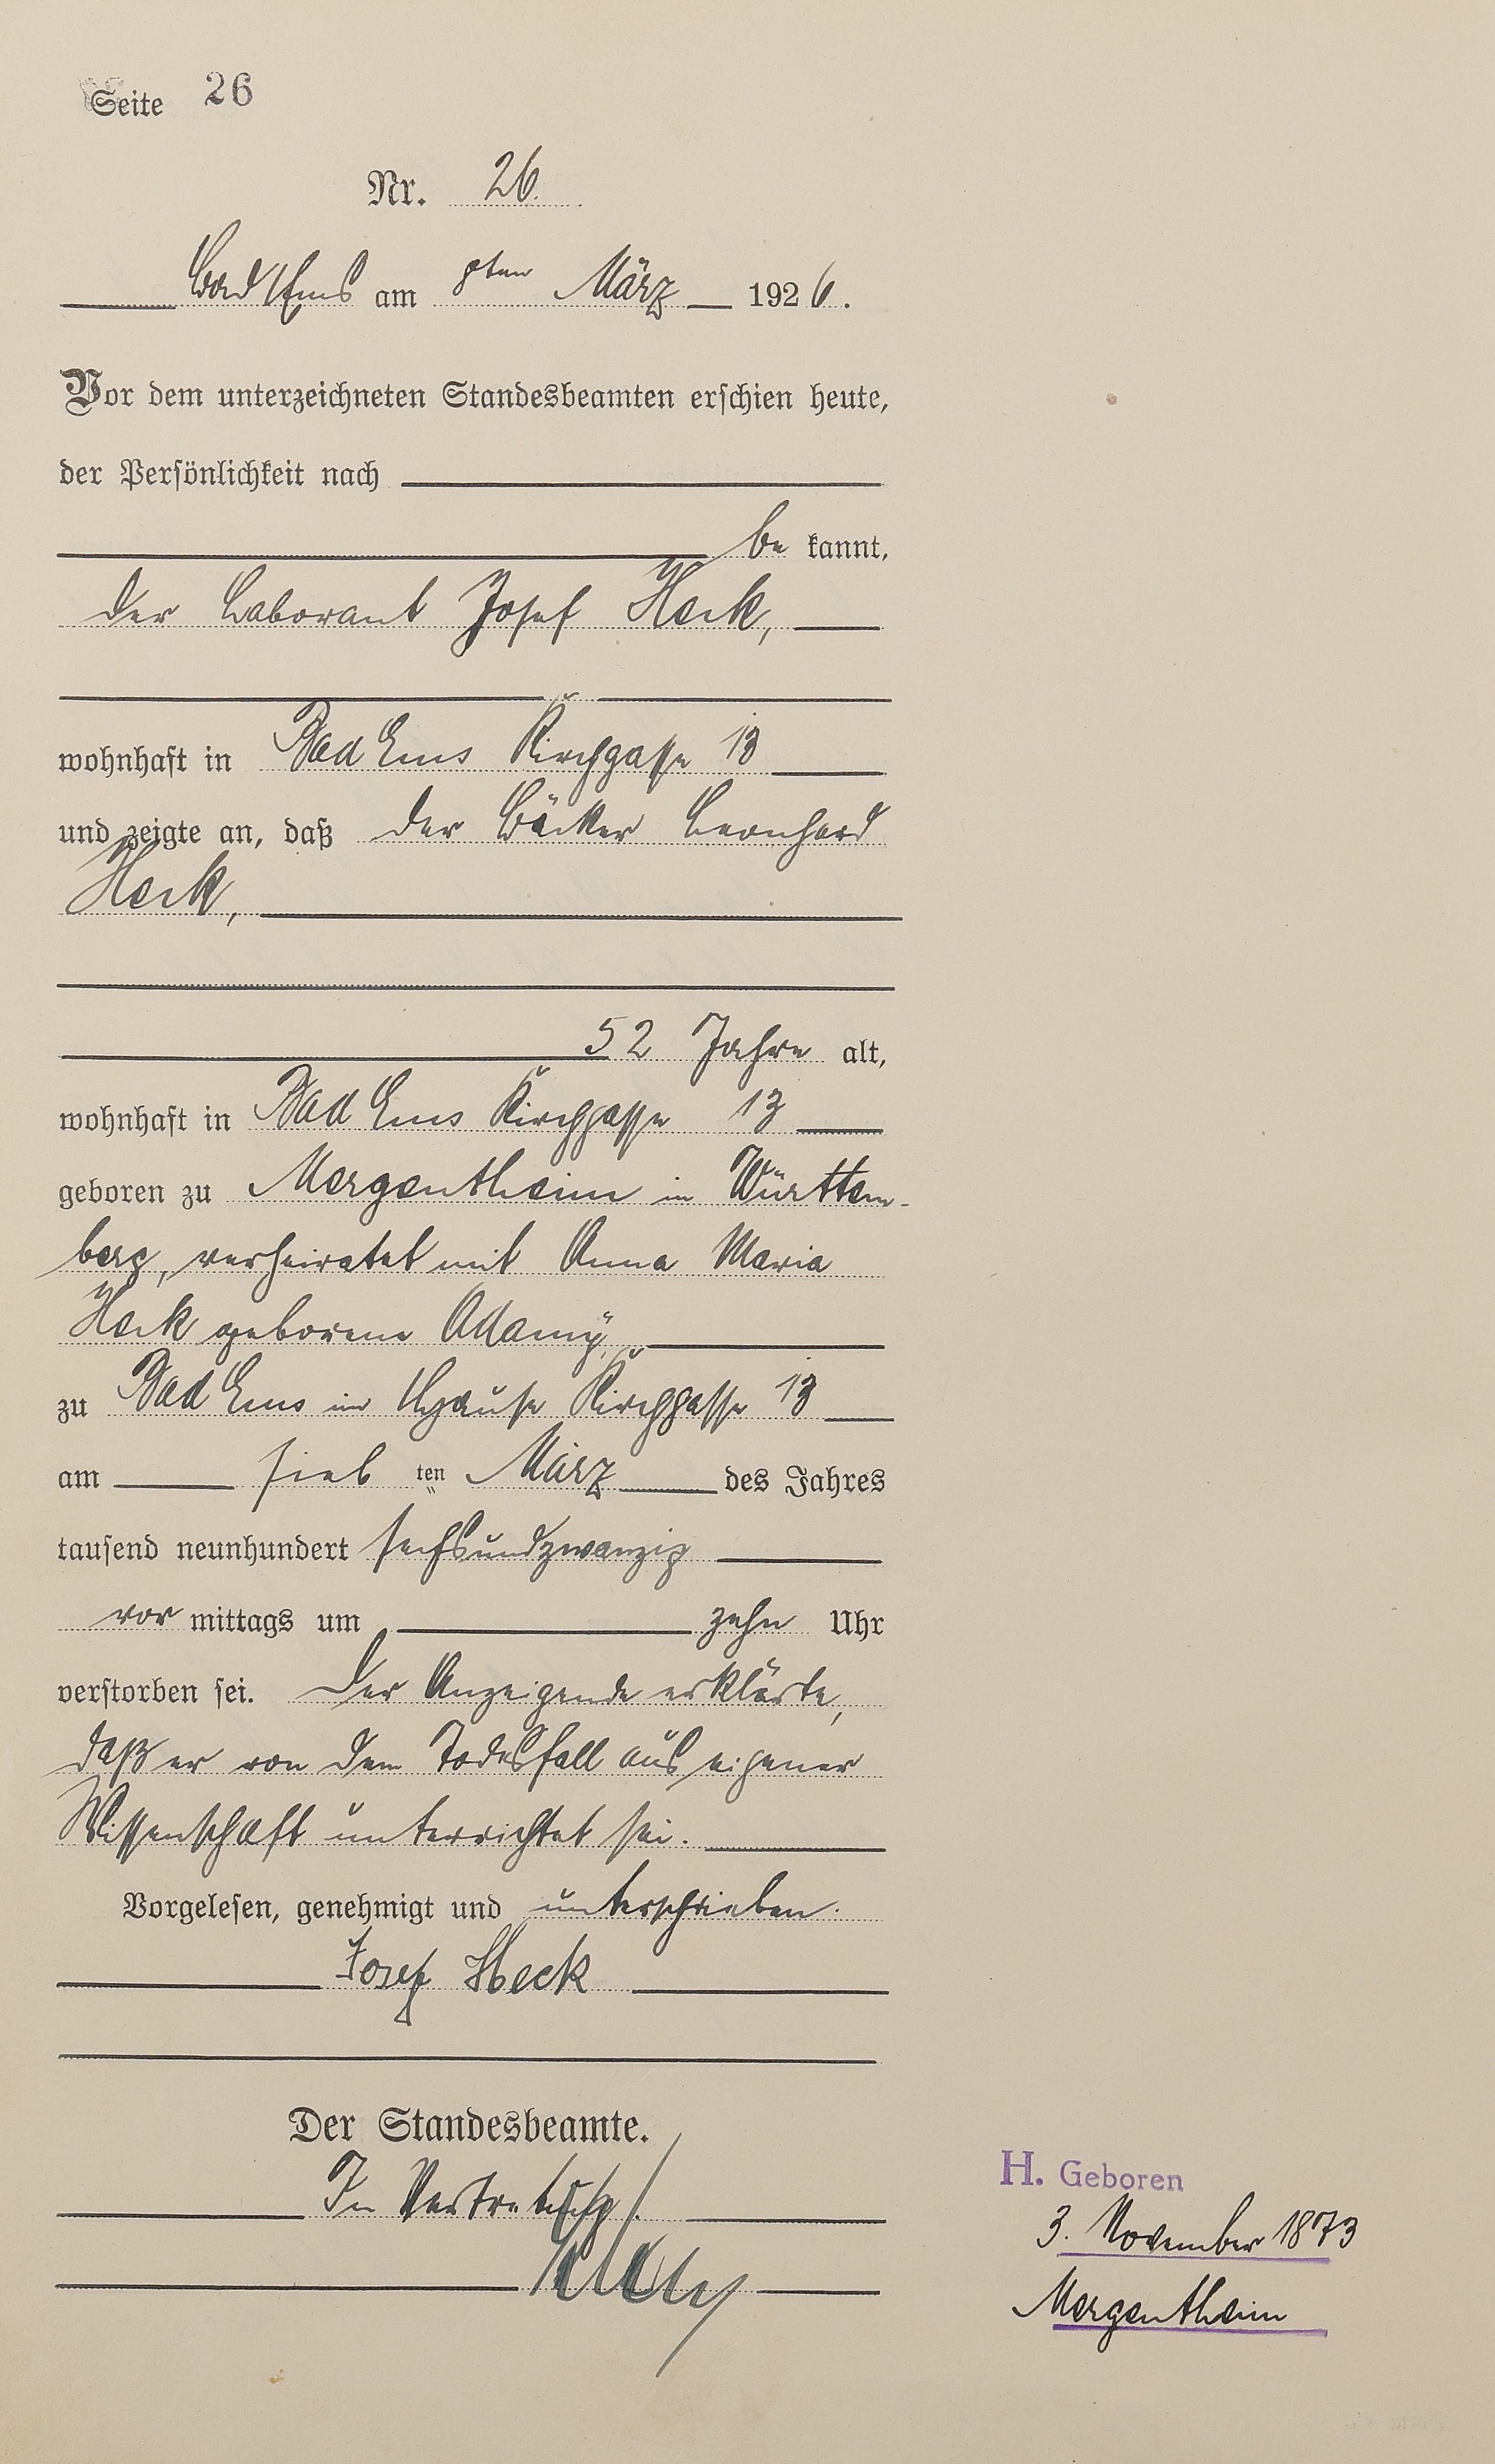 Seite 26
Nr. 26.
Bad Ems am 8ten März 1926.
Vor dem unterzeichneten Standesbeamten erschien heute,
der Persönlichkeit nach
be kannt,
der Laborant Josef Heck,
wohnhaft in Bad Ems Kirchgasse 13
und zeigte an, daß der Bäcker Leonhard
Heck,
52 Jahre alt,
wohnhaft in Bad Ems Kirchgasse 13
geboren zu Mergentheim in Württem-
berg, verheiratet mit Anna Maria
Heck geborene Adamÿ,
zu Bad Ems im Hause Kirchgasse 13
am sieb ten März des Jahres
tausend neunhundert sechsundzwanzig
vor mittags um zehn Uhr
verstorben sei. Der Anzeigende erklärte,
daß er von dem Todesfall aus eigener
Wissenschaft unterrichtet sei.
Vorgelesen, genehmigt und unterschrieben.
Josef Heck
Der Standesbeamte.
In Vertretung
H. Geboren
3. November 1873
Mergentheim